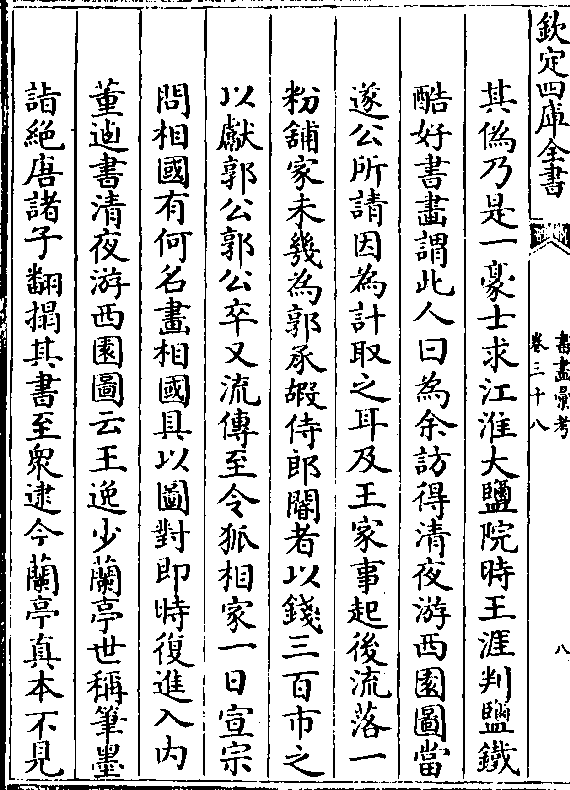 欽定四庫全書
書畫彙考
卷三十八
八
其偽乃是一豪士求江淮大鹽院時王涯判鹽鐵
酷好書畫謂此人曰為余訪得清夜游西園圖當
遂公所請因為計取之耳及王家事起後流落一
粉舖家未幾為郭承嘏侍郎閽者以錢三百市之
以獻郭公郭公卒又流傳至令狐相家一日宣宗
問相國有何名畫相國具以圖對即時復進入内
董逌書清夜游西園圖云王逸少蘭亭世稱筆墨
詣絶唐諸子翻搨其書至衆逮今蘭亭真本不見